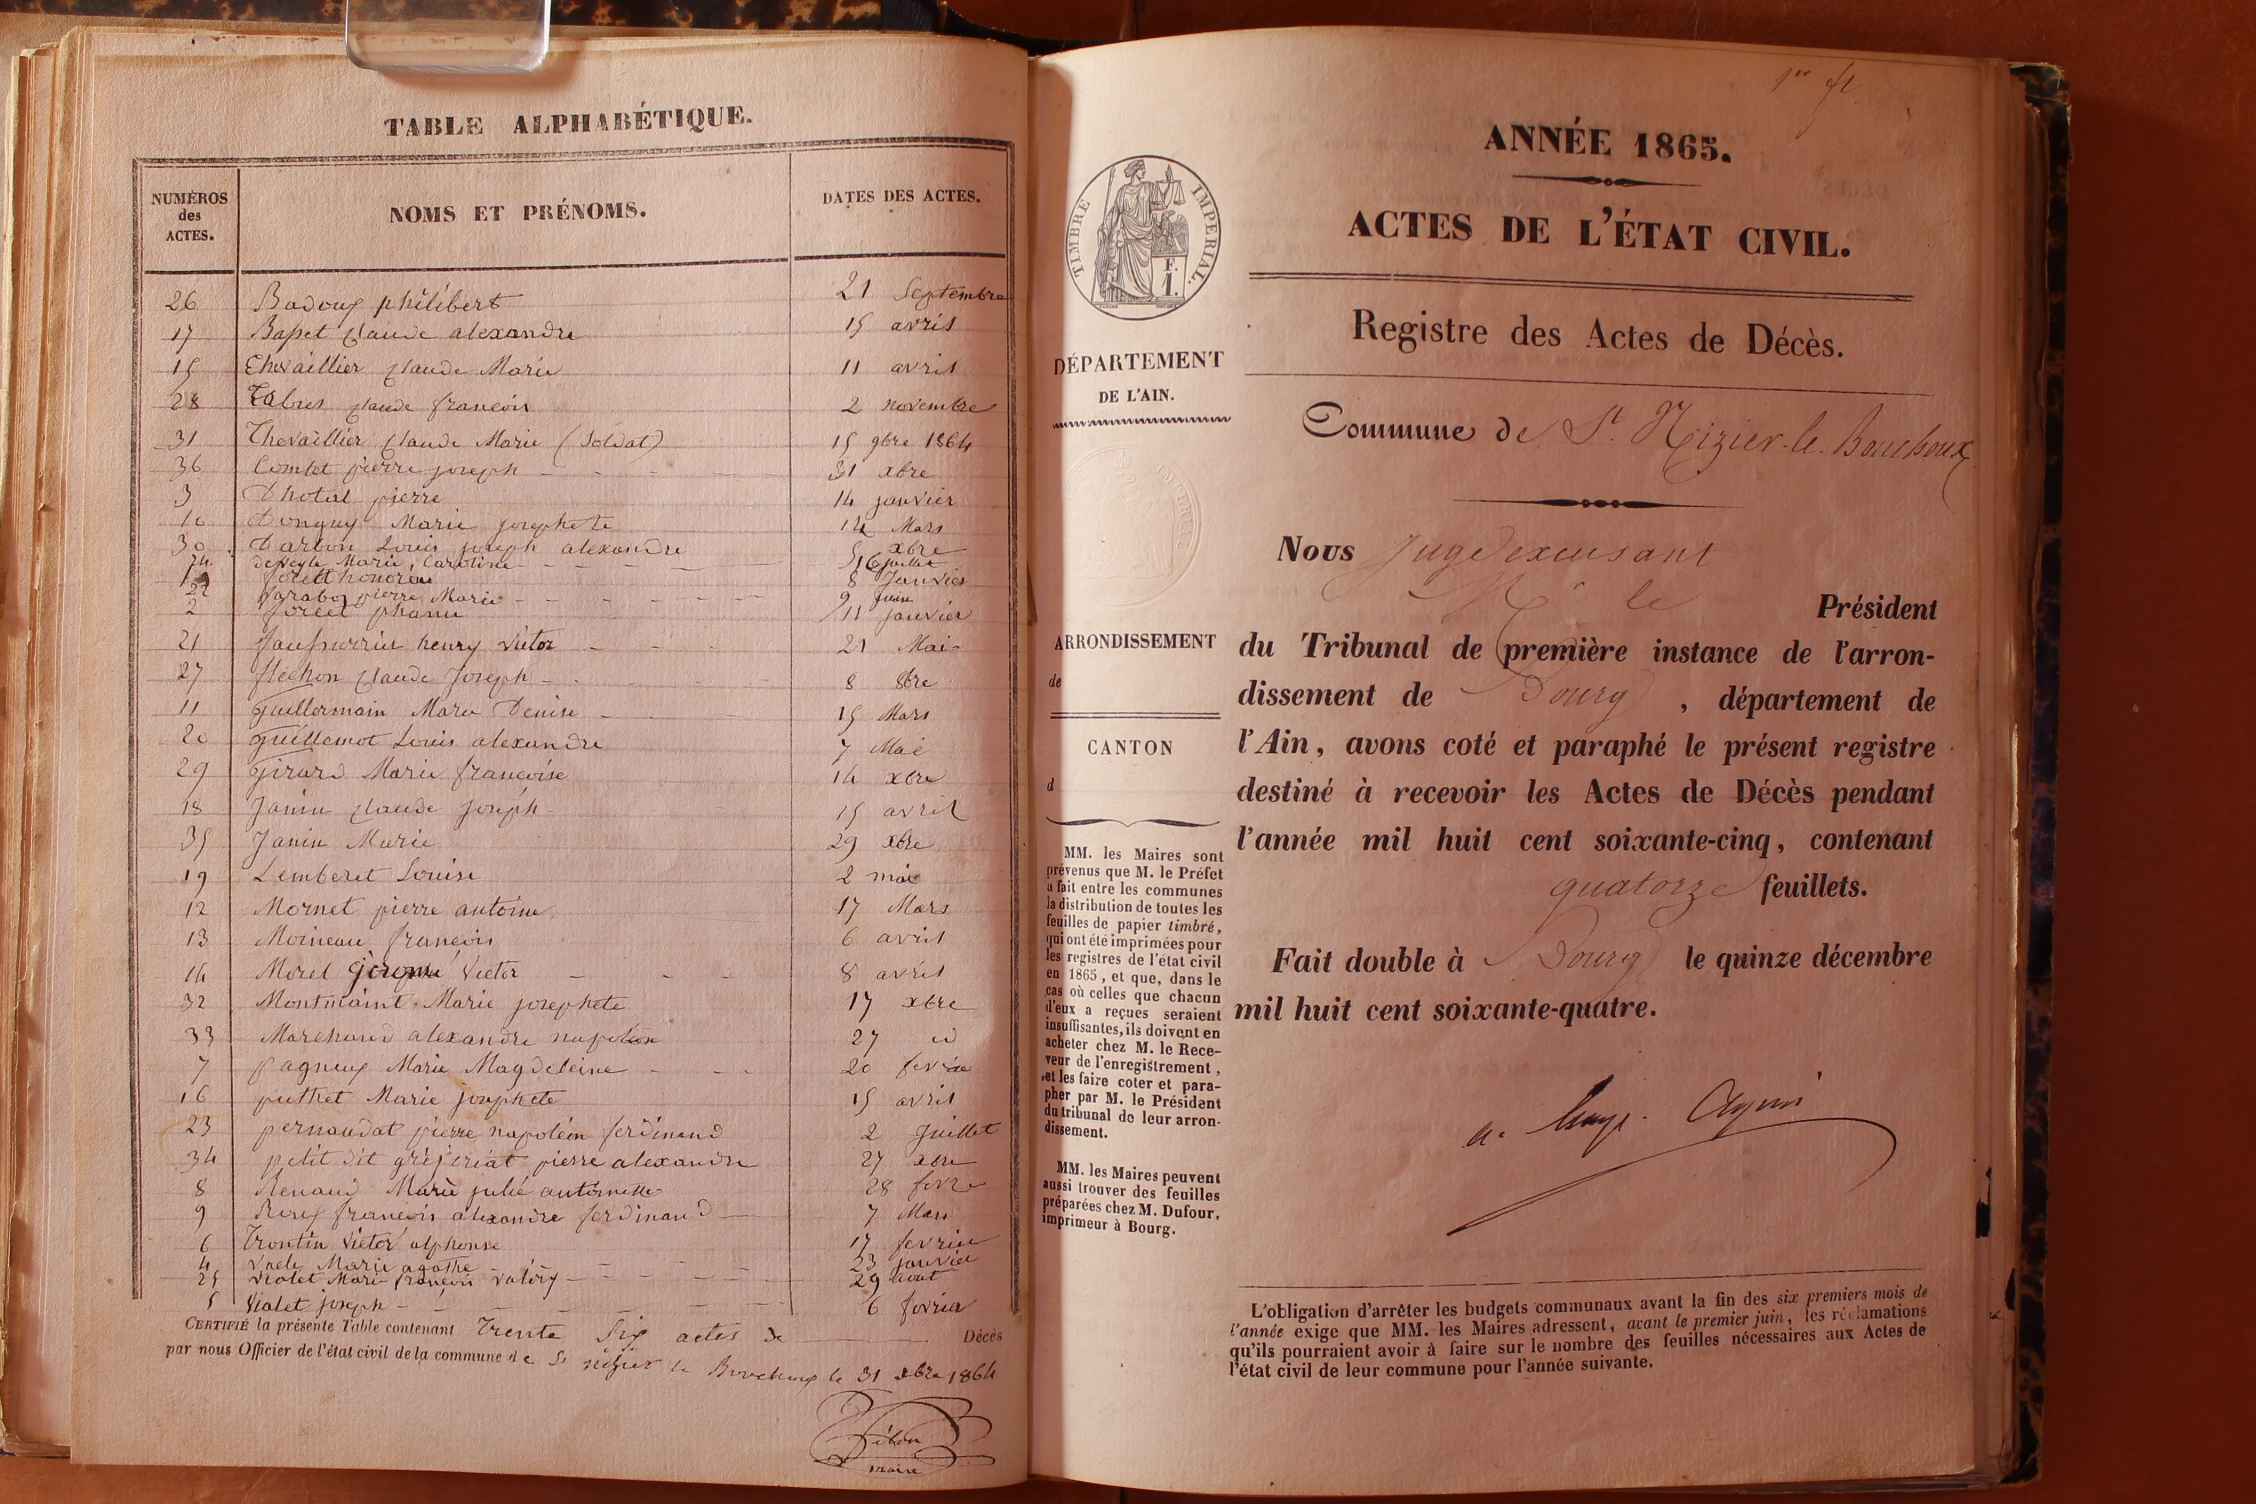 TABLE ALPHABÉTIQUE.
NUMÉROS des ACTES.
NOMS ET PRÉNOMS.
DATES DES ACTES.
26 Badoux philibert 21 Septembre
17 Basset Claude alexandre 15 avril
15 Chevaillier Claude Marie 11 avril
28 Claude françois 2 novembre
31 Chevaillier Claude Marie (Soldat) 15 9bre 1864
36 Combet pierre joseph 31 xbre
3 Dhotal pierre 14 janvier
10 Donguy Marie josephete 14 Mars
30 Darbon Louis joseph alexandre 5 xbre
24 Marie Caroline 16 juillet
1 honorine 8 Janvier
22 pierre Marie 9 Juin
2 11 janvier
21 henry Victor 21 Mai
27 flechon Claude Joseph 8 8bre
11 guillermain Marie Denise 15 Mars
20 guillemot Louis alexandre 7 Mai
29 girard Marie françoise 14 xbre
18 Janin Claude Joseph 15 avril
35 Janin Marie 29 xbre
19 Lemberet Louise 2 mai
12 Mornet pierre antoine 17 Mars
13 Moineau françois 6 avril
14 Morel Victor 8 avril
32 Montmaint Marie josephete 17 xbre
33 Marchand alexandre napoléon 27 id
7 pagneux Marie Magdeleine 20 fevrier
16 puthet Marie josephete 15 avril
23 pernaudat pierre napoléon ferdinand 2 Juillet
34 petit dit pierre alexandre 27 xbre
8 Renaud Marie julie antoinette 28 fevr
9 Rury françois alexandre ferdinand 7 Mars
6 Trontin Victor alphonse 17 fevrier
4 Marie agathe 23 janvier
25 Violet Marie françois valéry 29 aout
5 Violet joseph 6 fevrier
CERTIFIÉ la présente Table contenant Trente Six actes de Décès
par nous Officier de l'état civil de la commune de St nizier le Bouchoux le 31 xbre 1864
maire
1er
ANNÉE 1865.
ACTES DE L'ÉTAT CIVIL.
Registre des Actes de Décès.
Commune de St Nizier-le-Bouchoux
TIMBRE IMPERIAL
F.
1.
DÉPARTEMENT
DE L'AIN.
ARRONDISSEMENT
de
CANTON
d
MM. les Maires sont
prévenus que M. le Préfet
a fait entre les communes
la distribution de toutes les
feuilles de papier timbré,
qui ont été imprimées pour
les registres de l'état civil
en 1865, et que, dans le
cas où celles que chacun
d'eux a reçues seraient
insuffisantes, ils doivent en
acheter chez M. le Rece-
veur de l'enregistrement,
et les faire coter et para-
pher par M. le Président
du tribunal de leur arron-
dissement.
MM. les Maires peuvent
aussi trouver des feuilles
préparées chez M. Dufour,
imprimeur à Bourg.
Nous Juge
Mr le Président
du Tribunal de première instance de l'arron-
dissement de Bourg, département de
l'Ain, avons coté et paraphé le présent registre
destiné à recevoir les Actes de Décès pendant
l'année mil huit cent soixante-cinq, contenant
quatorze feuillets.
Fait double à Bourg le quinze décembre
mil huit cent soixante-quatre.
L'obligation d'arrêter les budgets communaux avant la fin des six premiers mois de
l'année exige que MM. les Maires adressent, avant le premier juin, les réclamations
qu'ils pourraient avoir à faire sur le nombre des feuilles nécessaires aux Actes de
l'état civil de leur commune pour l'année suivante.